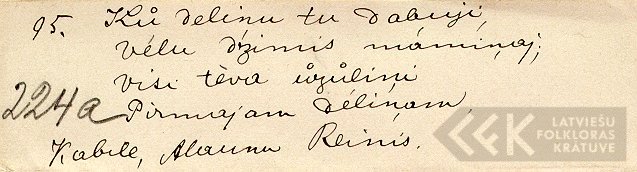 95. Ků deliņu tu dabuji,
vélu dzimis mámiņaj;
visi tèva ůzůliņi
224a Pirmajam déliņam,
Kabile, Alaunu Reinis.
LATVIEŠU
FOLKLORAS
KRĀTUVE